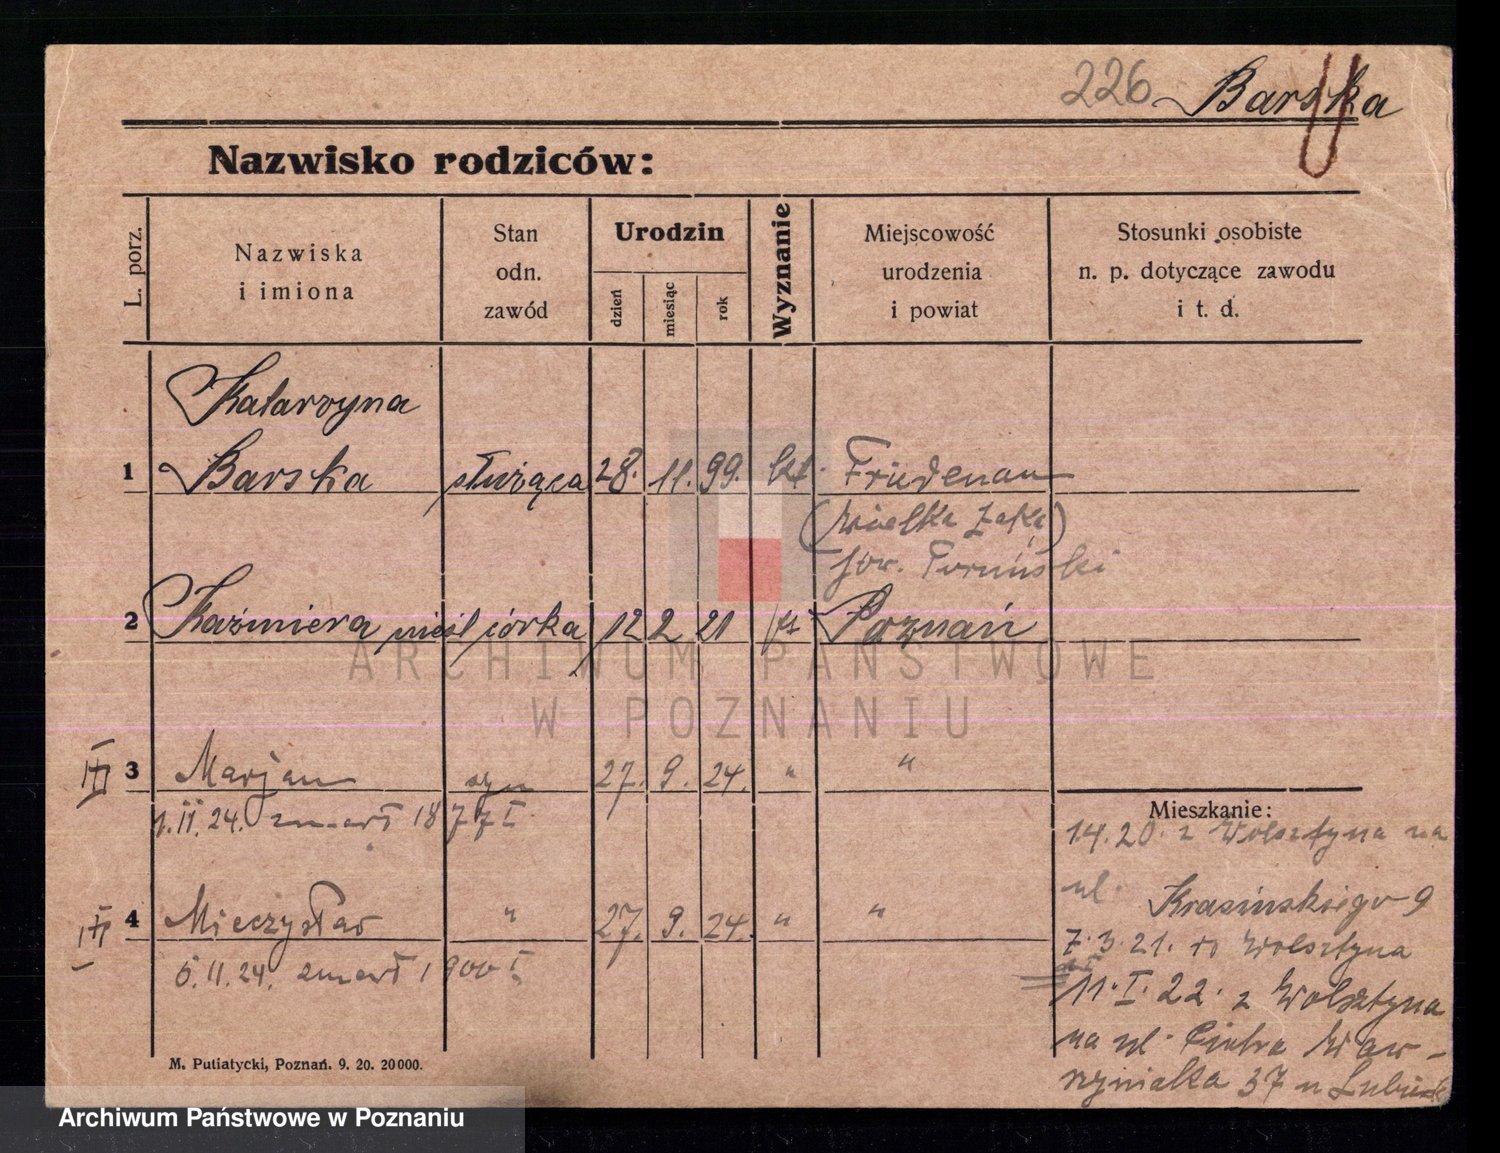 226 Barska
Nazwisko rodziców:
L. porz.
Nazwiska
i imiona
Stan
odn.
zawód
Urodzin
dzień
miesiąc
rok
Wyznanie
Miejscowość
urodzenia
i powiat
Stosunki osobiste
n. p. dotyczące zawodu
i t. d.
Katarzyna
1 Barska służąca 28. 11. 99. Friedenau
(Wielka Łąka)
pow. Toruński
2 Kaźmiera nieśl córka 12 2 21 Poznań
3 Marjan syn 27. 9. 24. " "
1. II. 24. zmarł 1877 I
4 Mieczysław " 27. 9. 24. " "
5. 11. 24. zmarł 1900 I
Mieszkanie:
14. 20. z Wolsztyna na
ul. Krasińskiego 9
7. 3. 21. do Wolsztyna
11. I. 22. z Wolsztyna
na ul. Piotra Waw-
rzyniaka 37 u
M. Putiatycki, Poznań. 9. 20. 20000.
ARCHIWUM PAŃSTWOWE
W POZNANIU
Archiwum Państwowe w Poznaniu